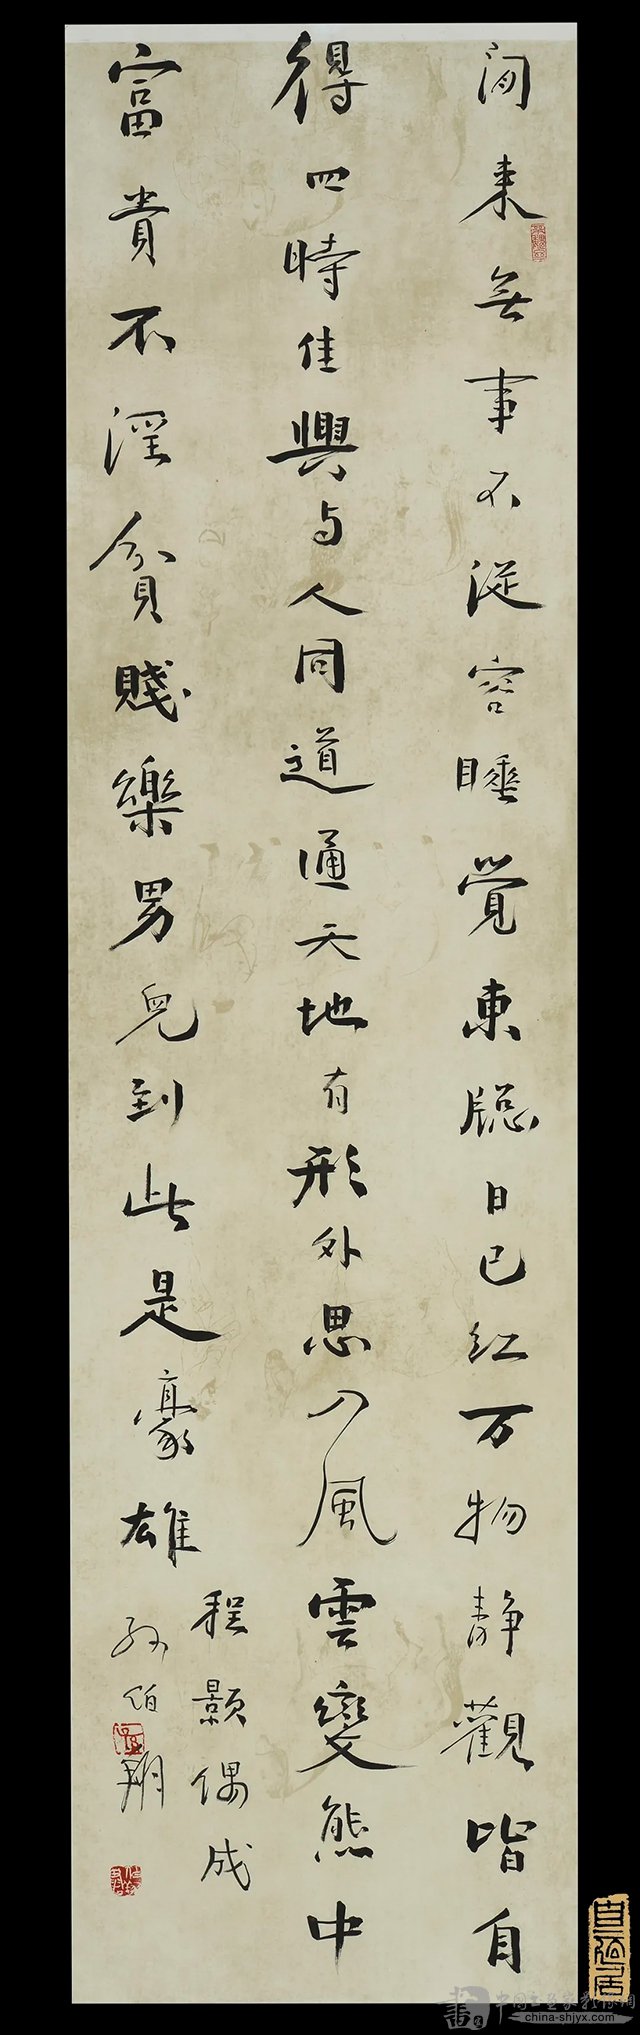 閒来無事不從容睡覺東牕日已红万物静觀皆自
得四時佳興与人同道通天地有形外思入風雲變態中
富貴不淫貧賤樂男兒到此是豪雄
程顥偶成
孙伯翔
書
中国书画家教你网
china-shjyx.com